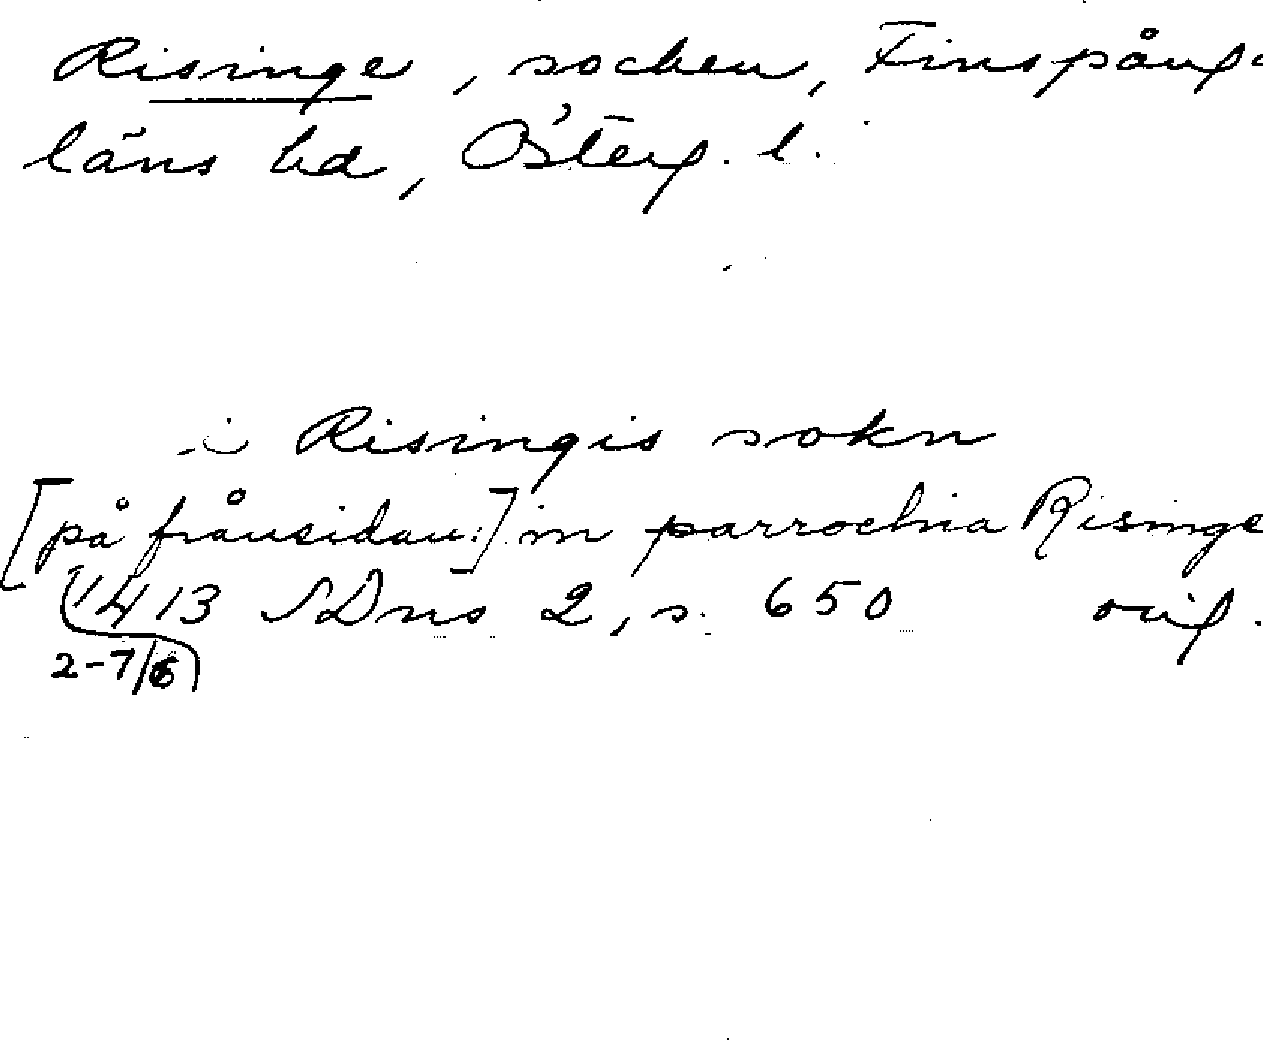 Risinge, socken, Finspånga
läns hd, Österg. l.
i Risingis sokn
[på frånsidan:] in parrochia Risinge
1413 SDns 2, s. 650 orig.
2-7/6